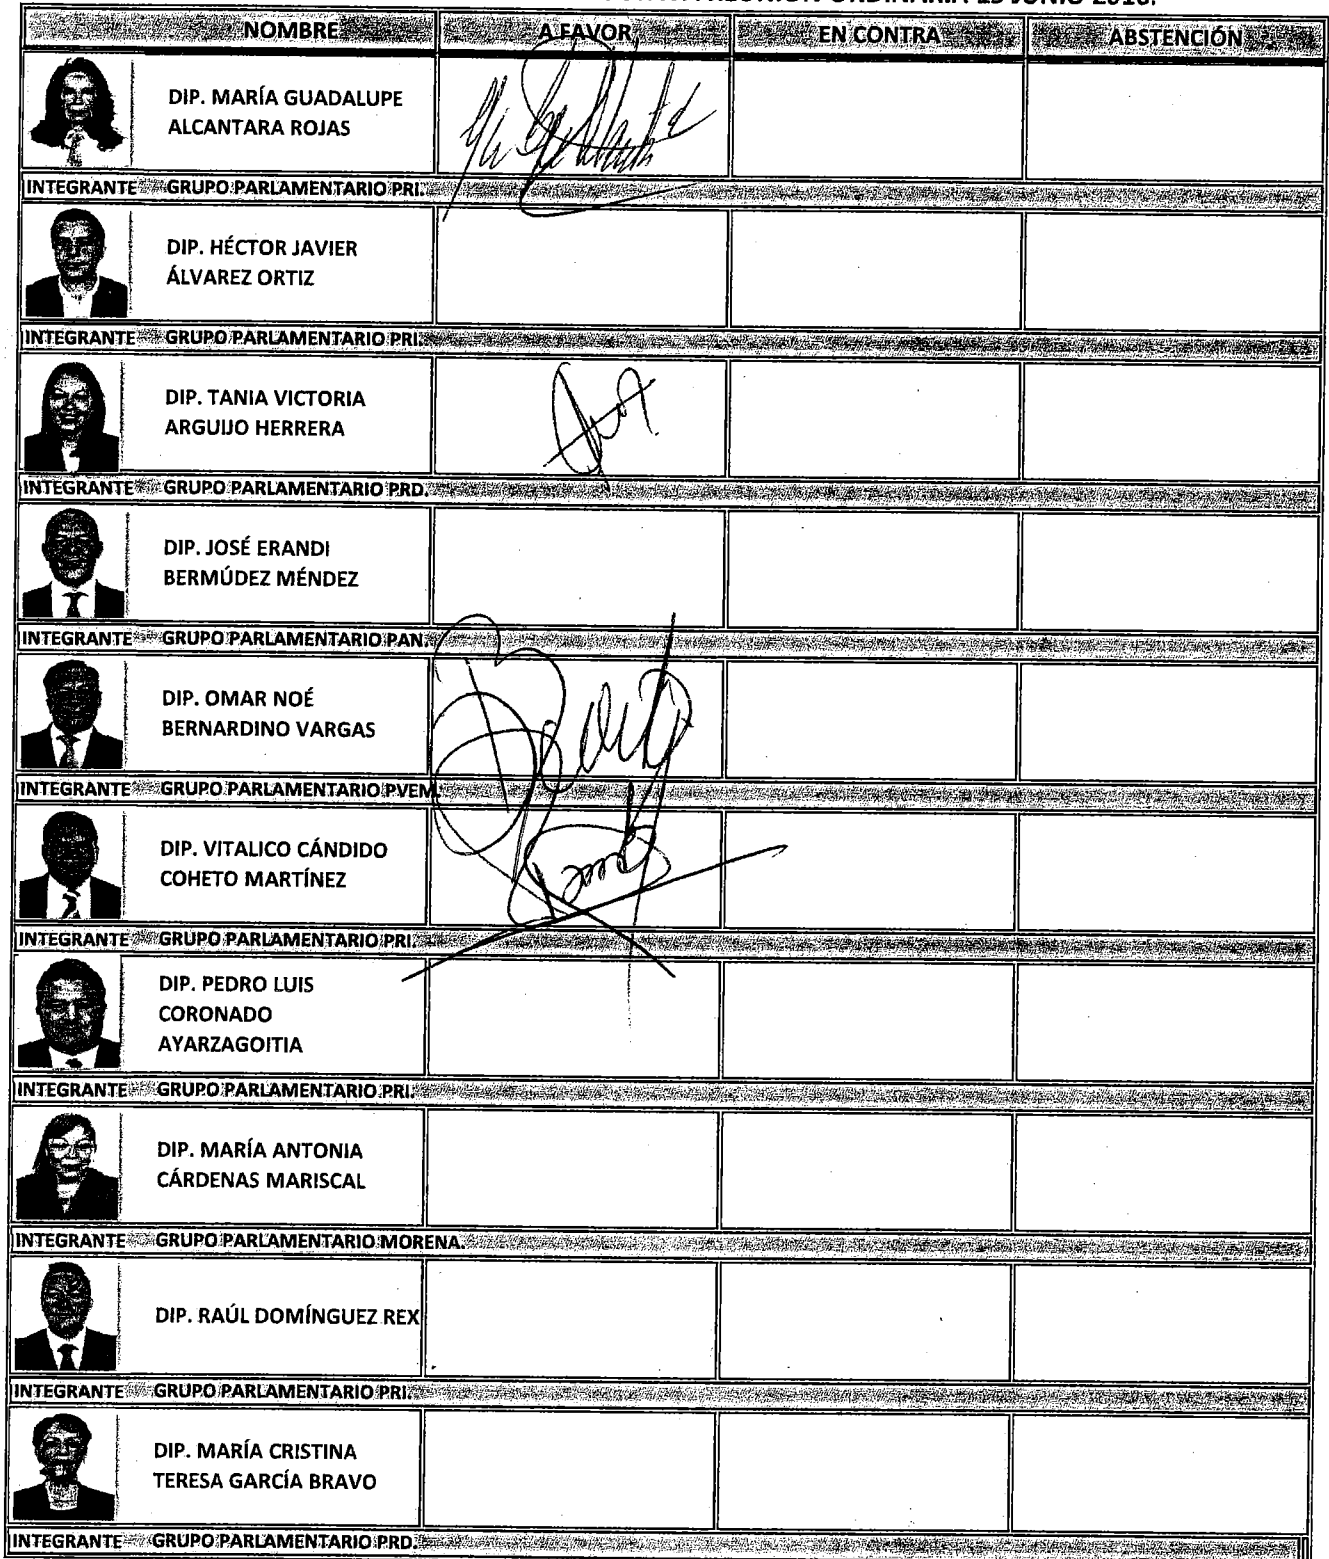 REUNIÓN ORDINARIA 15 JUNIO 2016.
NOMBRE A FAVOR EN CONTRA ABSTENCIÓN
DIP. MARÍA GUADALUPE
ALCANTARA ROJAS
INTEGRANTE GRUPO PARLAMENTARIO PRI.
DIP. HÉCTOR JAVIER
ÁLVAREZ ORTIZ
INTEGRANTE GRUPO PARLAMENTARIO PRI.
DIP. TANIA VICTORIA
ARGUIJO HERRERA
INTEGRANTE GRUPO PARLAMENTARIO PRD.
DIP. JOSÉ ERANDI
BERMÚDEZ MÉNDEZ
INTEGRANTE GRUPO PARLAMENTARIO PAN.
DIP. OMAR NOÉ
BERNARDINO VARGAS
INTEGRANTE GRUPO PARLAMENTARIO PVEM.
DIP. VITALICO CÁNDIDO
COHETO MARTÍNEZ
INTEGRANTE GRUPO PARLAMENTARIO PRI.
DIP. PEDRO LUIS
CORONADO
AYARZAGOITIA
INTEGRANTE GRUPO PARLAMENTARIO PRI.
DIP. MARÍA ANTONIA
CÁRDENAS MARISCAL
INTEGRANTE GRUPO PARLAMENTARIO MORENA.
DIP. RAÚL DOMÍNGUEZ REX
INTEGRANTE GRUPO PARLAMENTARIO PRI.
DIP. MARÍA CRISTINA
TERESA GARCÍA BRAVO
INTEGRANTE GRUPO PARLAMENTARIO PRD.